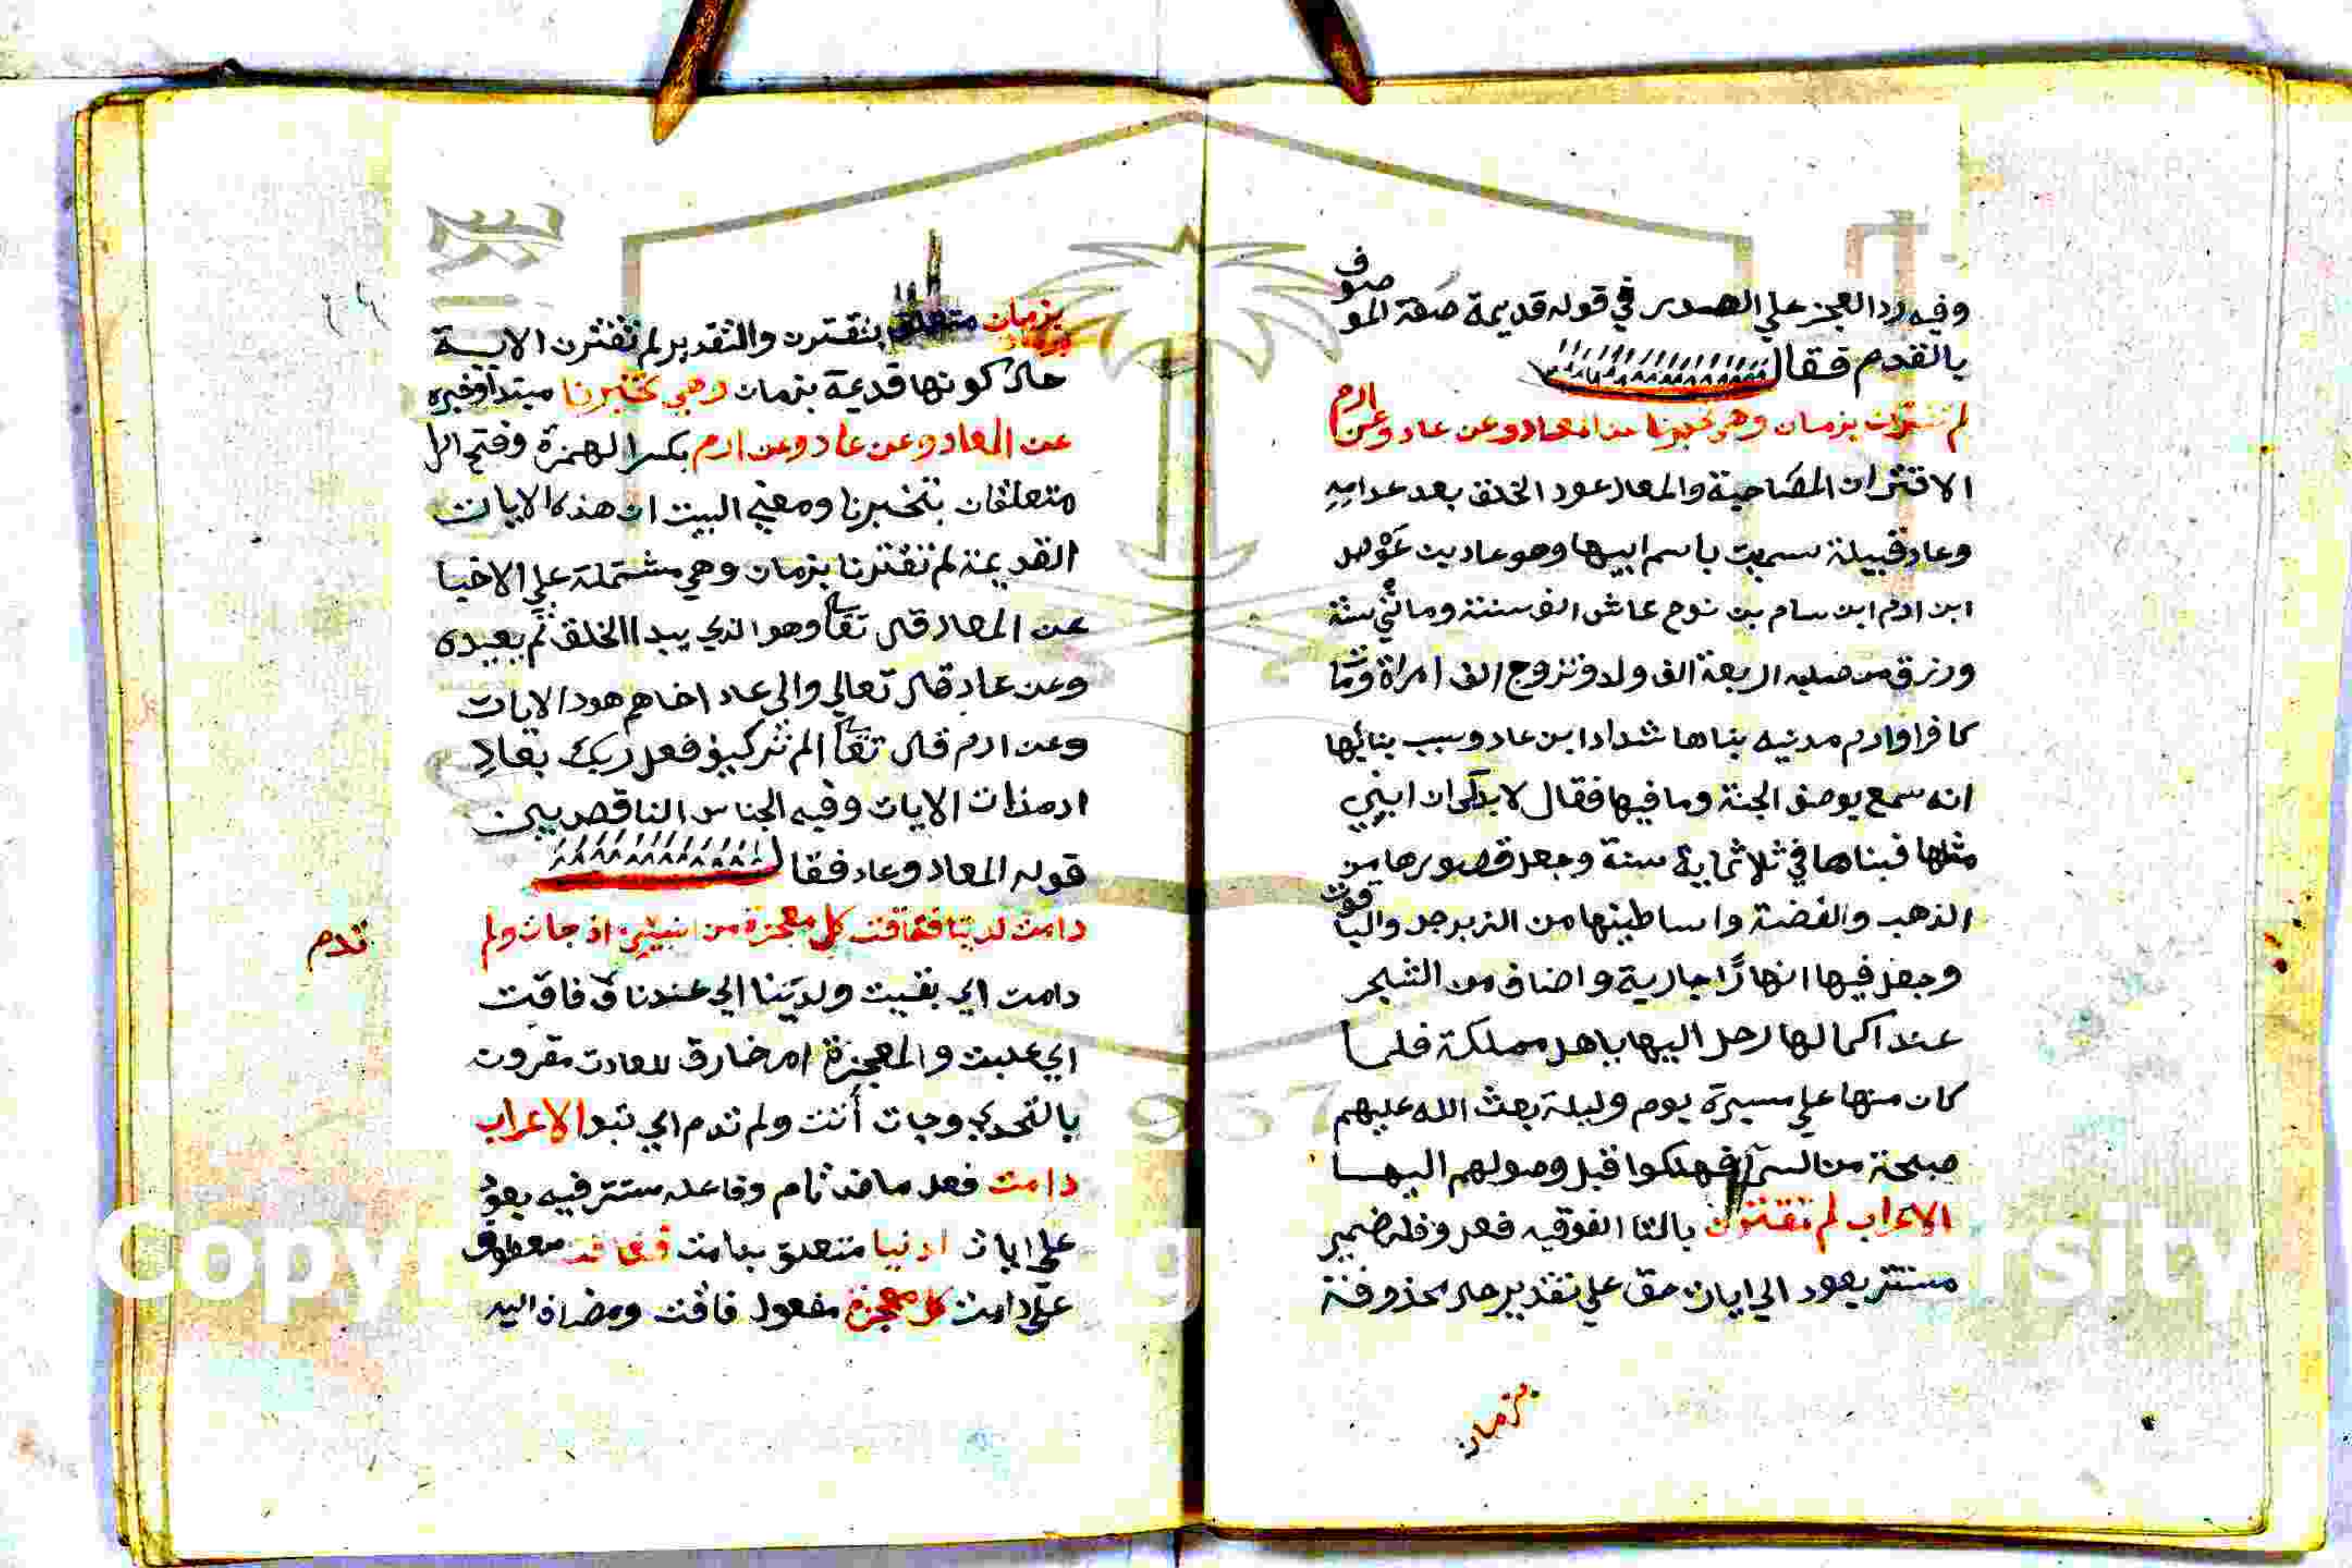 وفيه رد العجز علي الصدر في قوله قديمة صفة الموصوف
بالقدم فقال
لم تقترن بزمان وهي تخبرنا عن المعاد وعن عاد وعن ارم
الاقتران المصاحبة والمعاد عود الخلق بعد عدامه
وعاد قبيلة سميت باسم ابيها وهو عاد بن عوص
ابن ارم ابن سام بن نوح عاش الف سنة ومائتي سنة
ورزق من صلبه اربعة الف ولد وتزوج الف امراة ومات
كافرا وارم مدنيه بناها شداد ابن عاد وسبب بنائها
انه سمع بوصف الجنة وما فيها فقال لا بد لي ان ابني
مثلها فبناها في ثلاثماية سنة وجعل قصورها من
الذهب والفضة واساطينها من الزبرجد والياقوت
وجعل فيها انهارًا جارية واضاف من الشجر
عند اكمالها رحل اليها باهل مملكة فلما
كان منها علي مسيرة يوم وليلة بعث الله عليهم
صيحة من السما فهلكوا قبل وصولهم اليها
الاعراب لم تقترن بالتا الفوقيه فعل وفله ضمير
مستتر يعود الي ايات حق علي تقدير حال محذوفة
بزمان
بزمان متعلق بتقترن والتقدير لم تقترن الاية
حال كونها قديمة بزمان وهي تخبرنا مبتدا وخبره
عن المعاد وعن عاد وعن ارم بكسر الهمزة وفتح الرا
متعلقان بتخبرنا ومعني البيت ان هذه الايات
القديمة لم تقترنا بزمان وهي مشتملة علي الاخبا
عن المعاد قال تعا وهو الذي يبدا الخلق ثم يعيده
وعن عاد قال تعالي والي عاد اخاهم هودا الايات
وعن ارم قال تعا الم تر كيف فعل ربك بعادِ
ارم ذات الايات وفيه الجناس الناقص بين
قوله المعاد وعاد فقال
دامت لدينا ففاقت كل معجزة من النبيين اذ جات ولم
تدم
دامت اي بقيت ولدينا اي عندنا ففاقت
اي غلبت والمعجزة امر خارق للعادت مقرون
بالتحدي وجات أتت ولم تدم اي تبد الاعراب
دامت فعل ماض تام وفاعله مستتر فيه يعود
علي ايات لدنيا متعلق بدامت ففاقت معطوف
علي دامت كل معجزة مفعول فاقت ومضاف اليه